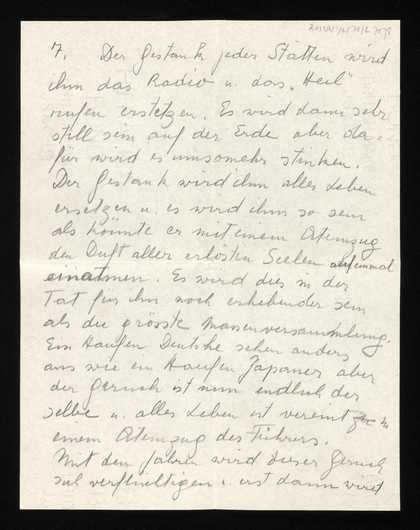 7. Der Gestank jeder Stätten wird
ihm das Radio u. das „Heil"
rufen ersetzen. Es wird dann sehr
still sein auf der Erde aber da-
für wird es umsomehr stinken.
Der Gestank wird ihm alles Leben
ersetzen u. es wird ihm so sein
als könnte er mit einem Atemzug
den Duft aller erlösten Seelen auf einmal
einatmen. Es wird dies in der
Tat für ihn noch erhebender sein
als die grösste Massenversammlung.
Ein Haufen Deutsche sehen anders
aus wie ein Haufen Japaner aber
der Geruch ist nun endlich der
selbe u. alles Leben ist vereint in
einem Atemzug des Führers.
Mit den Jahren wird dieser Geruch
sich verflüchtigen u. erst dann wird